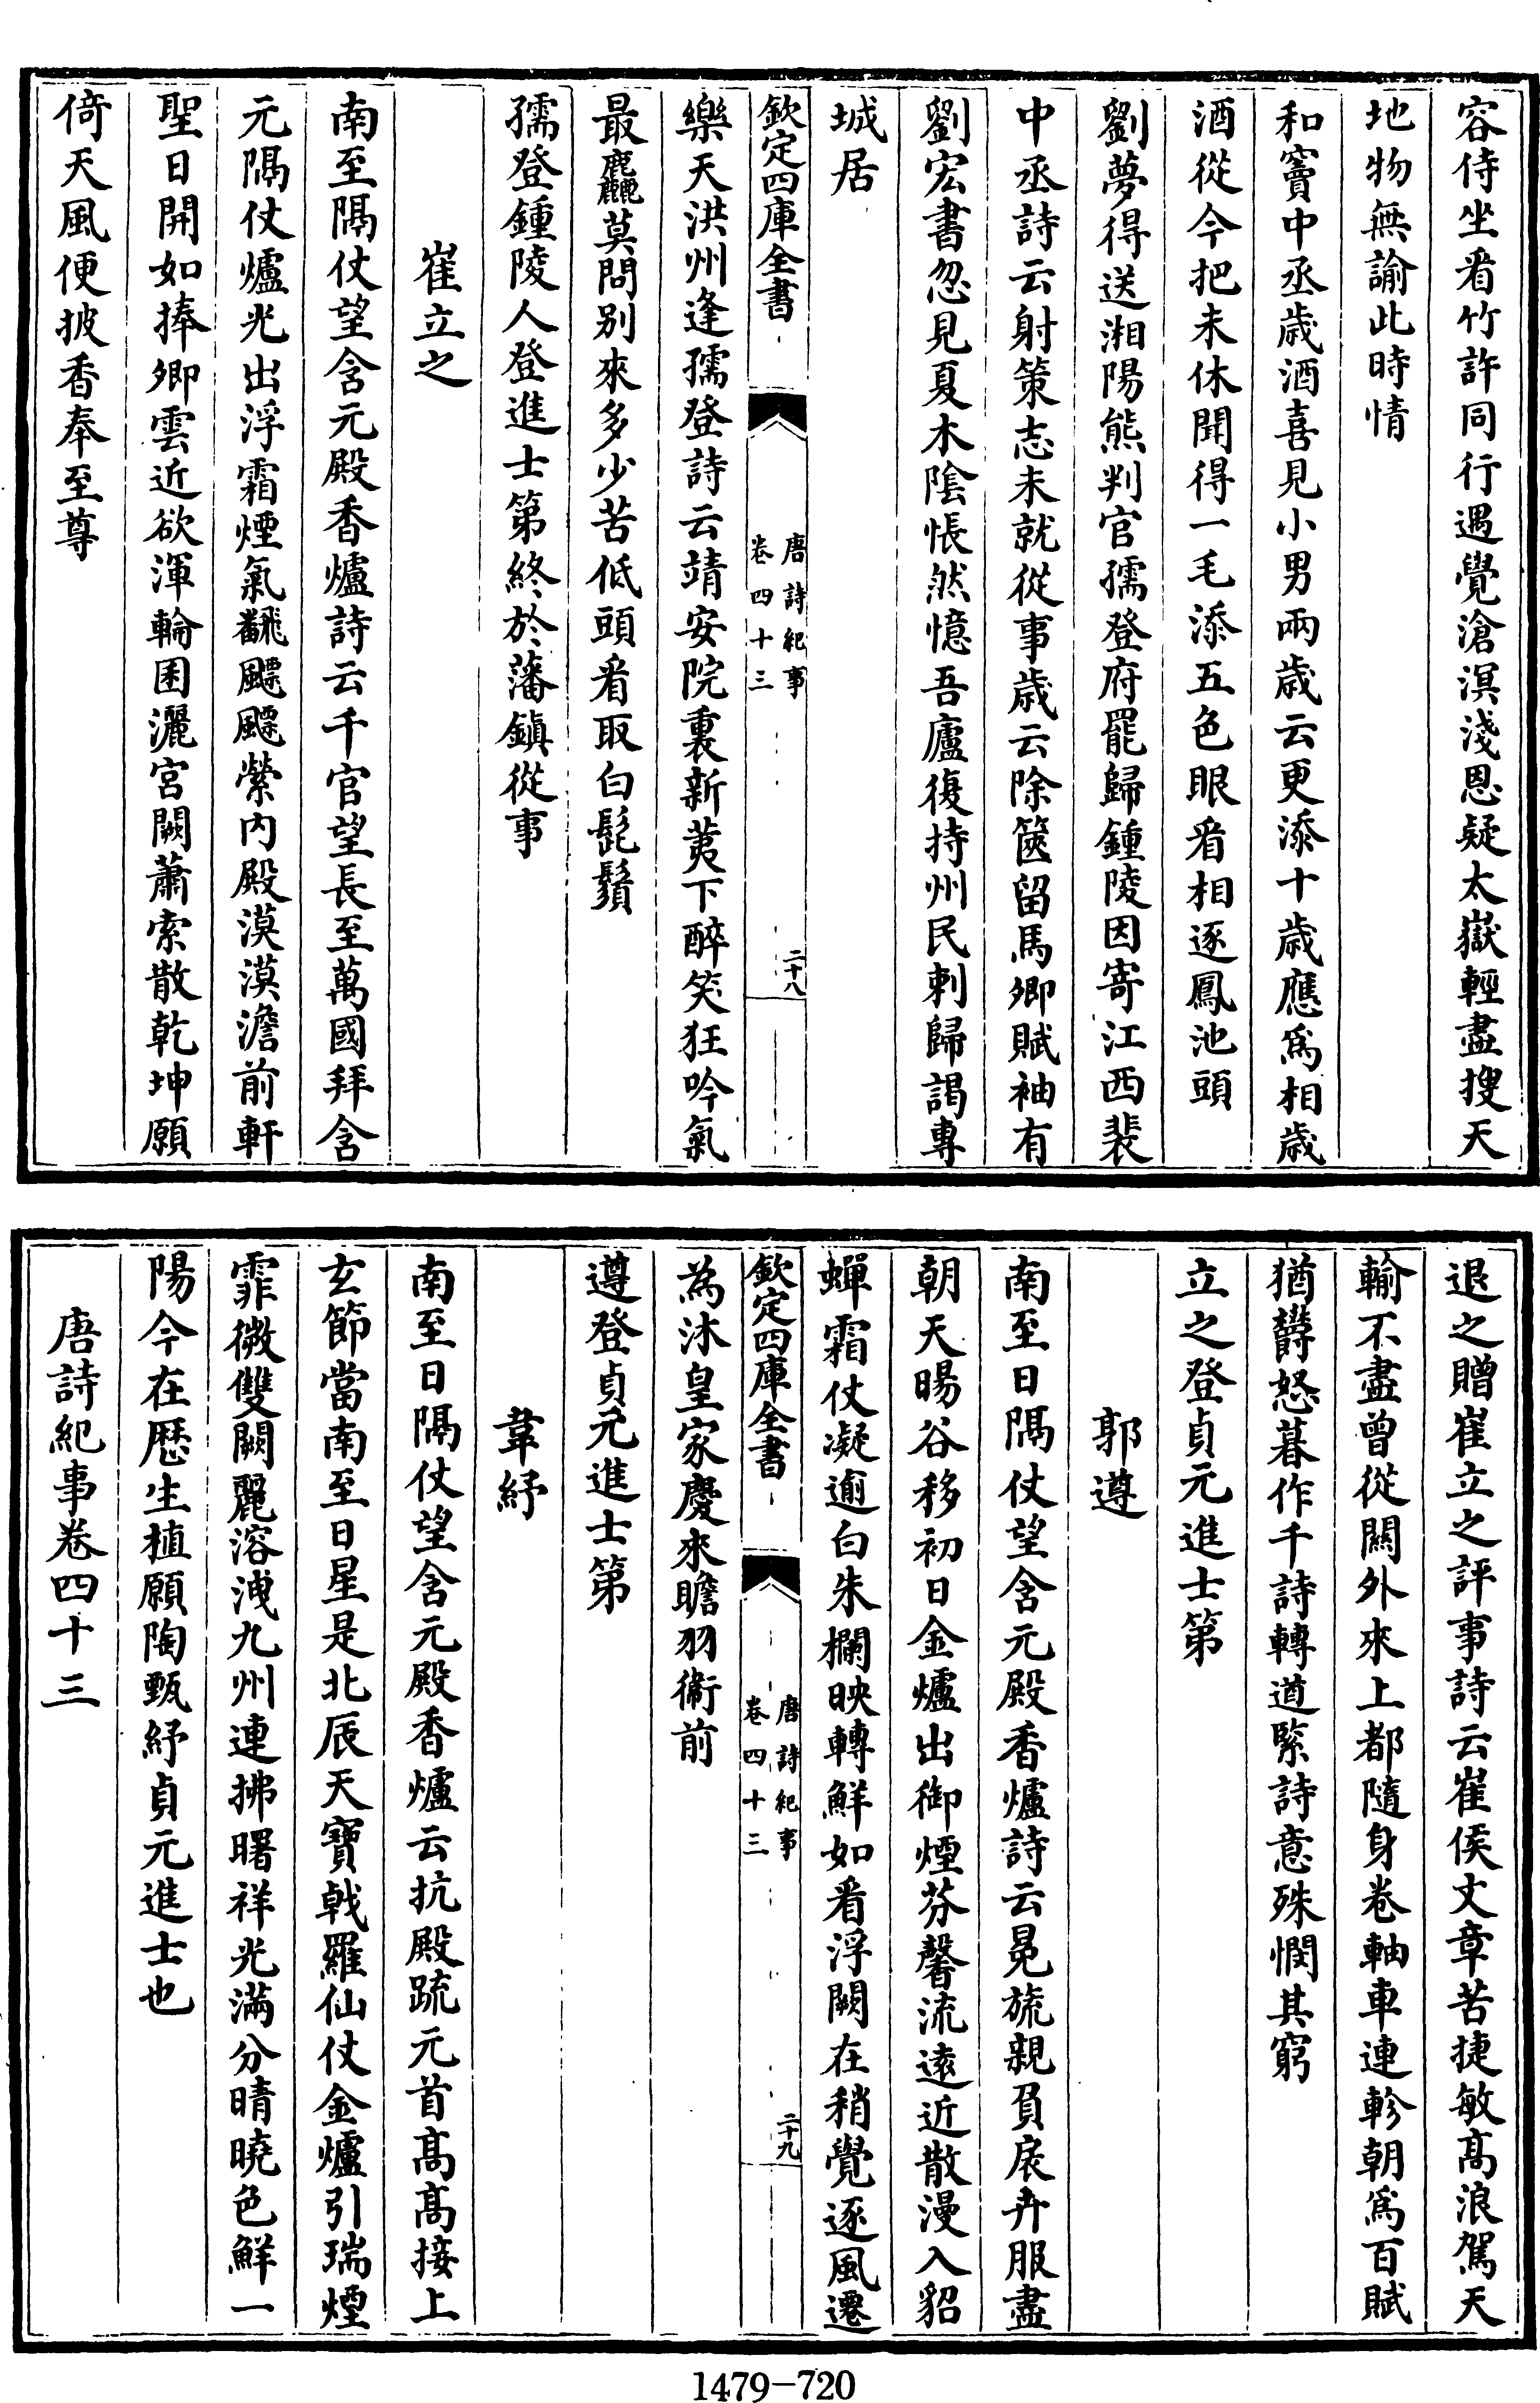 容侍坐看竹許同行遇覺滄溟淺恩疑太嶽輕盡搜天
地物無諭此時情
和竇中丞歲酒喜見小男兩歲云更添十歲應為相歲
酒從今把未休聞得一毛添五色眼看相逐鳳池頭
劉夢得送湘陽熊判官孺登府罷歸鍾陵因寄江西裴
中丞詩云射策志未就從事歲云除篋留馬卿賦袖有
劉宏書忽見夏木陰悵然憶吾廬復持州民刺歸謁專
城居
欽定四庫全書
唐詩紀事
卷四十三
二十八
樂天洪州逢孺登詩云靖安院裏新荑下醉笑狂吟氣
最麤莫問别來多少苦低頭看取白髭鬚
孺登鍾陵人登進士第終於藩鎮從事
崔立之
南至隔仗望含元殿香爐詩云千官望長至萬國拜含
元隔仗爐光出浮霜煙氣飜飄飄縈內殿漠漠澹前軒
聖日開如捧卿雲近欲渾輪囷灑宮闕蕭索散乾坤願
倚天風便披香奉至尊
退之贈崔立之評事詩云崔侯文章苦捷敏高浪駕天
輸不盡曾從關外來上都隨身卷軸車連軫朝為百賦
猶鬱怒暮作千詩轉遒緊詩意殊憫其窮
立之登貞元進士第
郭遵
南至日隔仗望含元殿香爐詩云冕旒親負扆卉服盡
朝天暘谷移初日金爐出御煙芬馨流遠近散漫入貂
蟬霜仗凝逾白朱欄映轉鮮如看浮闕在稍覺逐風遷
欽定四庫全書
唐詩紀事
卷四十三
二十九
為沐皇家慶來瞻羽衞前
遵登貞元進士第
韋紓
南至日隔仗望含元殿香爐云抗殿疏元首高高接上
玄節當南至日星是北辰天寶戟羅仙仗金爐引瑞煙
霏微雙闕麗溶洩九州連拂曙祥光滿分晴曉色鮮一
陽今在厯生植願陶甄紓貞元進士也
唐詩紀事卷四十三
1479-720